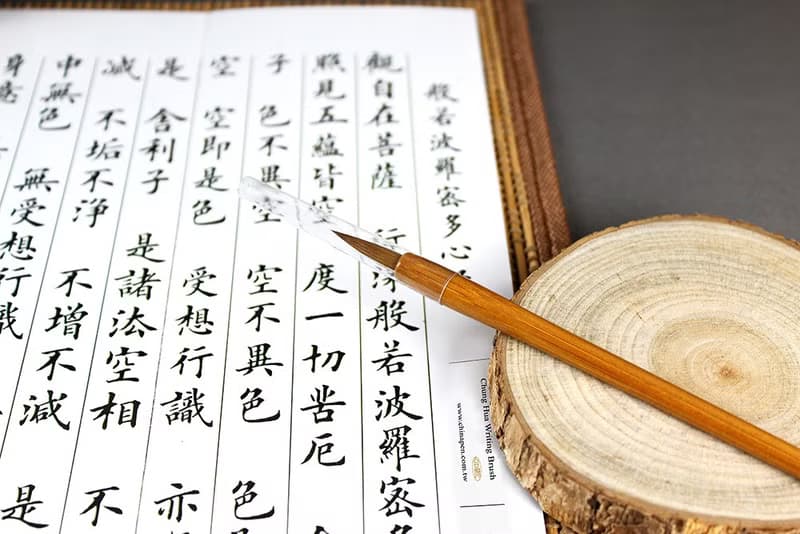 般若波羅蜜多心
觀自在菩薩 行深般若波羅蜜多
照見五蘊皆空 度一切苦厄
子 色不異空 空不異色 色
空 空即是色 受想行識 亦
是 舍利子 是諸法空相 不
滅 不垢不淨 不增不減 是
中無色 無受想行識
身意
Chung Hua Writing Brush
www.chinapen.com.tw